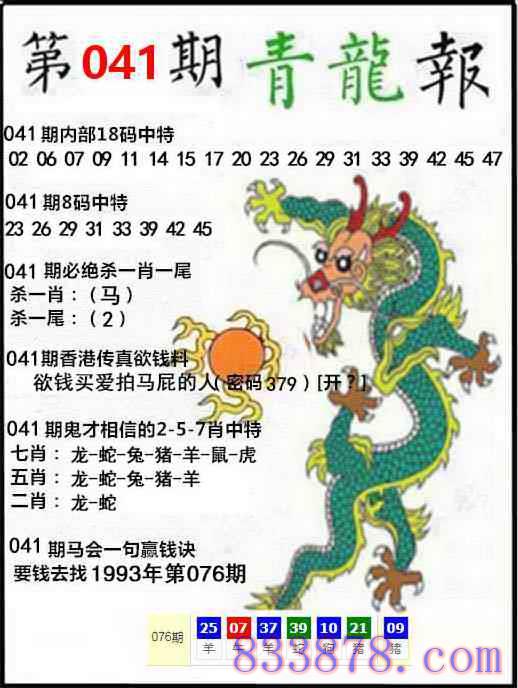 第041期青龍報
041期内部18码中特
02 06 07 09 11 14 15 17 20 23 26 29 31 33 39 42 45 47
041期8码中特
23 26 29 31 33 39 42 45
041 期必绝杀一肖一尾
杀一肖：（马）
杀一尾：（2）
041期香港传真欲钱料
欲钱买爱拍马屁的人(密码379)[开？]
041期鬼才相信的2-5-7肖中特
七肖：龙-蛇-兔-猪-羊-鼠-虎
五肖：龙-蛇-兔-猪-羊
二肖：龙-蛇
041 期马会一句赢钱诀
要钱去找1993年第076期
076期 25 07 37 39 10 21 09
羊 羊 蛇 狗 猪 猪
833878.com